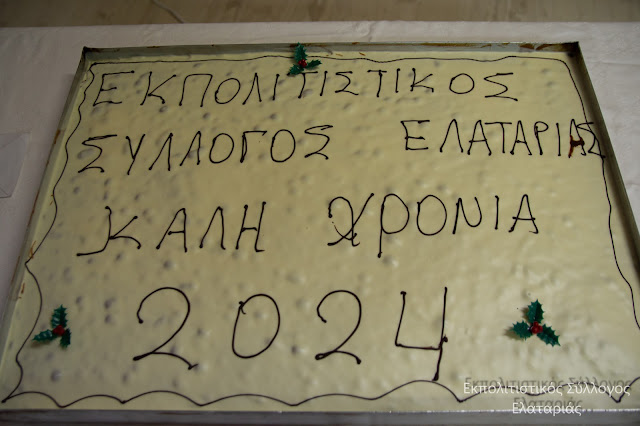 ΕΚΠΟΛΙΤΙΣΤΙΚΟΣ
ΣΥΛΛΟΓΟΣ ΕΛΑΤΑΡΙΑΣ
ΚΑΛΗ ΧΡΟΝΙΑ
2024
Εκπολιτιστικός Σύλλογος
Ελαταριάς